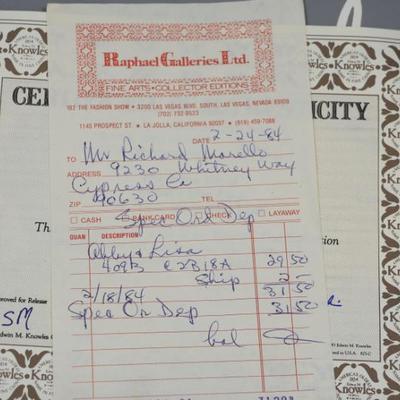 Knowles
CE
ICITY
Raphael Galleries Ltd.
FINE ARTS • COLLECTOR EDITIONS
THE FASHION SHOW • 3200 LAS VEGAS BLVD. SOUTH, LAS VEGAS, NEVADA 89109
(702) 732-8523
1145 PROSPECT ST. • LA JOLLA, CALIFORNIA 92037 • (619) 459-7088
DATE 2-24-84
TO Mr Richard Morello
ADDRESS 9230 Whitney Way
Cypress Ca
ZIP 90630 TEL
CASH BANK CARD CHECK LAYAWAY
Spec Ord Dep
QUAN DESCRIPTION
Abby & Lisa 29 50
409B E2B18A
Ship 2 -
31 50
2/18/84
Spec Or Dep 31 50
bal
Th
pproved for Release
SM
Edwin M. Knowles C
tion
Edwin M. Knowles
Knowles